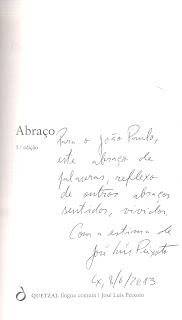 Abraço
3.ª edição
Para o João Paulo,
este abraço de
palavras, reflexo
de outros abraços
sentidos, vividos
Com a estima de
José Luís Peixoto
Lx, 8/6/2013
QUETZAL língua comum | José Luís Peixoto